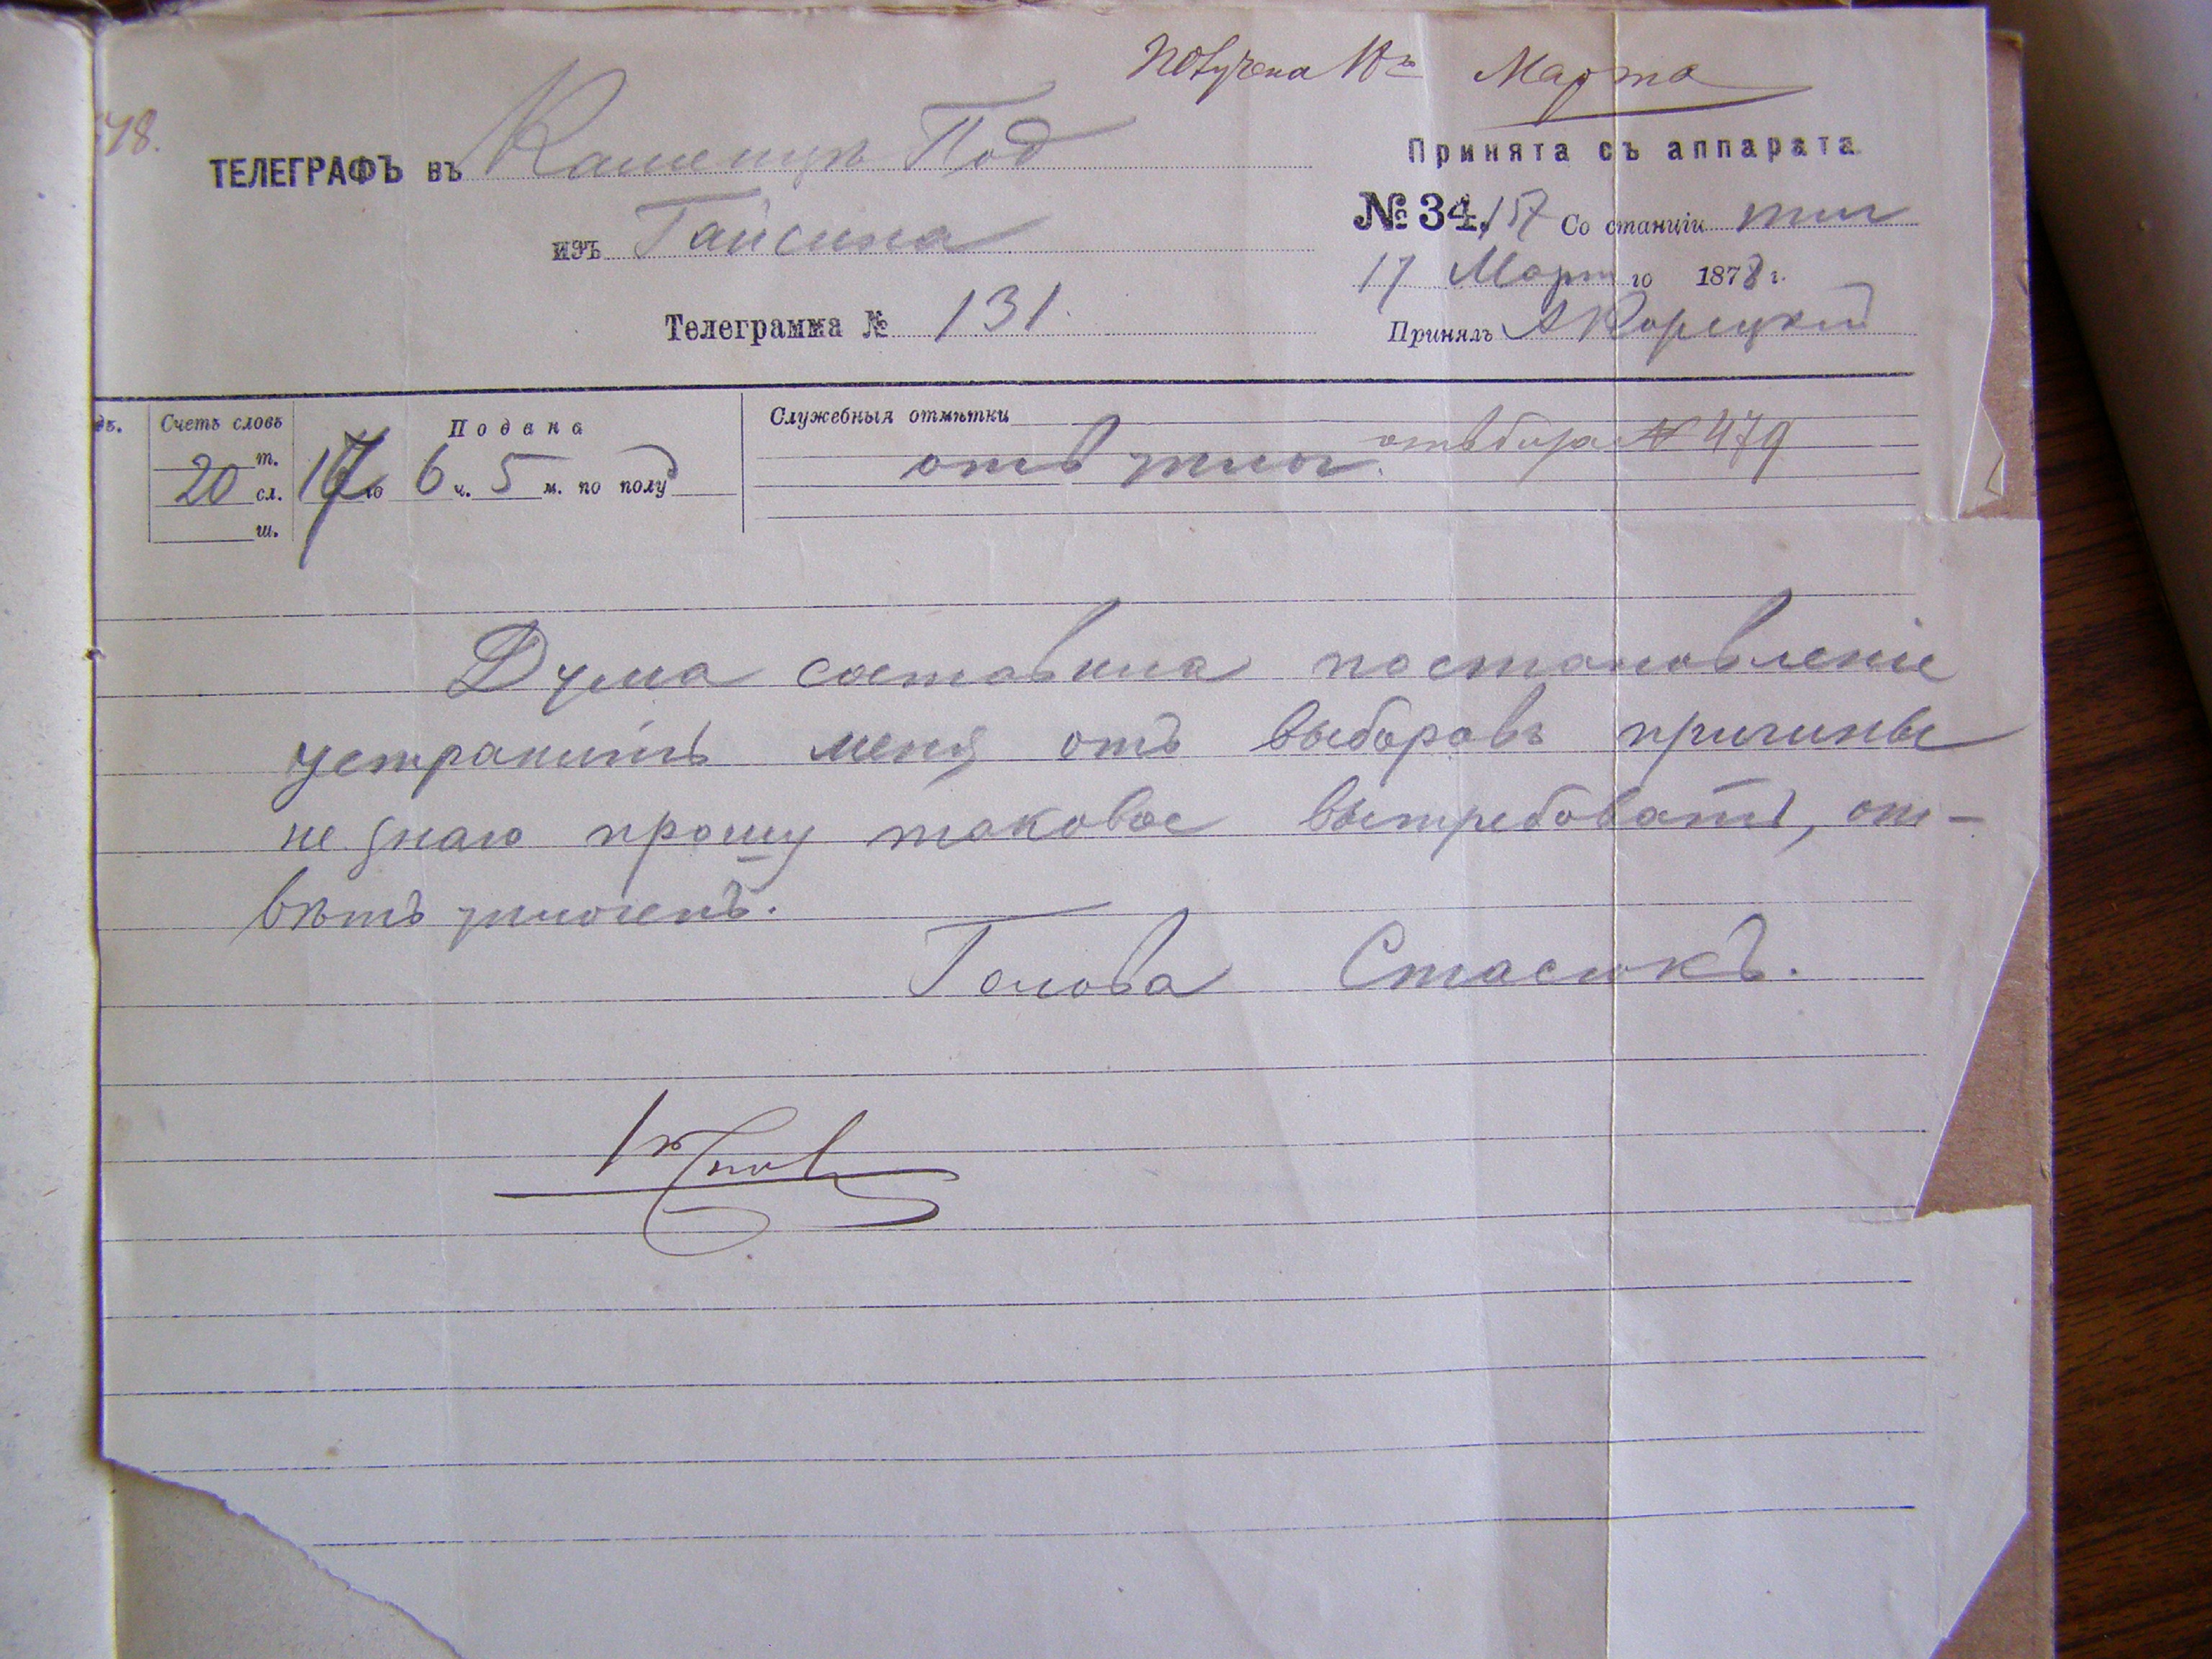 Получена 18го Марта
48.
ТЕЛЕГРАФЪ въ Каменецъ Под
изъ Гайсина
Телеграмма № 131.
Принята съ аппарата
№ 34,157 Со станціи
17 Март го 1878 г.
Принялъ А Корецкій
дъ.
Счетъ словъ
т.
20 сл.
ш.
Подана
17 го 6 ч. 5 м. по полу
Служебныя отмѣтки
отв упл № 479
Дума составила постановленіе
устранить меня отъ выборовъ причины
не знаю прошу таковое вытребовать, от-
вѣтъ уплоченъ.
Голова Стасюкъ.